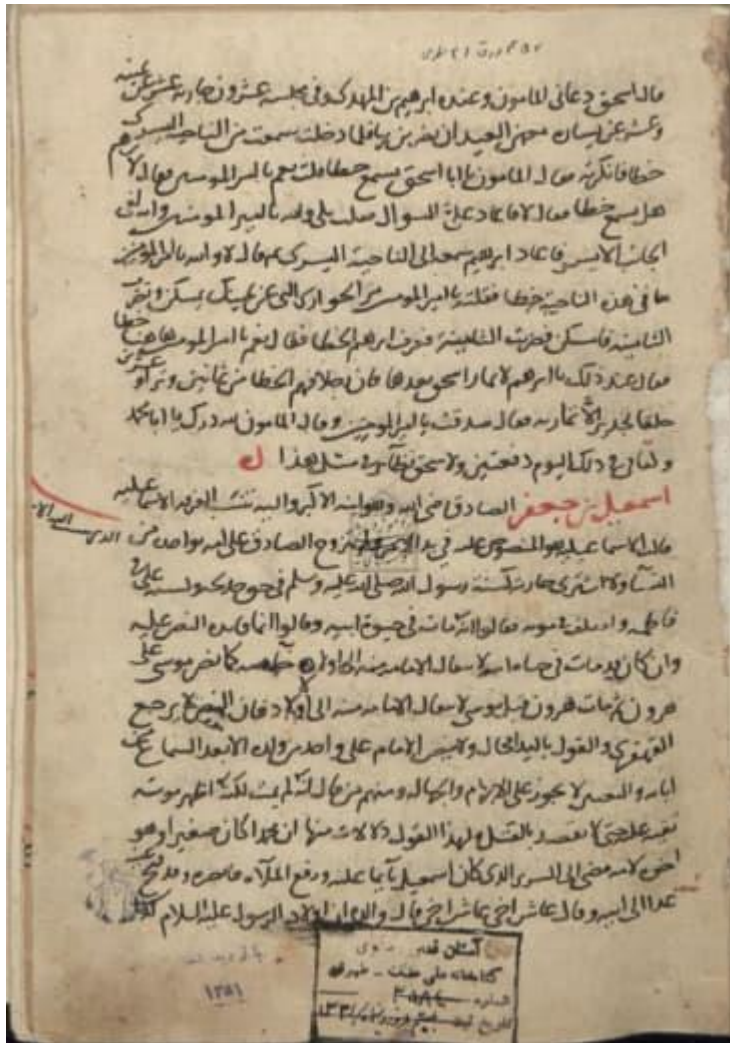 قال اسحق دعانى المامون وعنده ابرهيم بن المهدى وفى مجلسه عشرون جاريه عشر عن يمينه
وعشر عن يساره معهن العيدان يضربن بها فلما دخلت سمعت من الناحيه اليسرى
خطا فانكرته فقال المامون يا ابا اسحق تسمع خطا قلت نعم يا امير المومنين فقال لابرهيم
هل تسمع خطا فقال لا فاعاد على السوال فقلت بلى والله يا امير المومنين وانه لفى
الجانب الايسر فاعاد ابرهيم سمعه الى الناحية اليسرى ثم قال لا والله يا امير المومنين
ما فى هذه الناحية خطا فقلت يا امير المومنين مر الجوارى التى عن يمينك يمسكن وتضرب
الثامنه فامسكن فضربت الثامنة فعرف ابرهيم الخطا فقال نعم يا امير المومنين هاهنا خطا
فقال عند ذلك يا ابرهيم لا تمار اسحق بعدها فان رجلا فهم الخطا من ثمانين وترا وعشرين
حلقا لجدير الا تماريه فقال صدقت يا امير المومنين وقال المامون لله درك يا ابا محمد
وكنانى فى ذلك اليوم دفعتين ولاسحق نظاير فى مثل هذا
اسمعيل بن جعفر الصادق رضى الله وهو ابنه الاكبر واليه تنسب الفرقه الاسماعيليه
قالت الاسماعيليه هو المنصوص عليه فى بدء الامر ولم يتزوج الصادق على امه بواحده من
النساء ولا اشترى جارية كسنة رسول الله صلى الله عليه وسلم فى حق خديجه وكسنة على فى
فاطمه واختلف فى موته فقالوا انه مات فى حيوة ابيه وقالوا انما فايده النص عليه
وان كان قد مات فى حياة ابيه لانتقال الامامه منه الى اولاده خاصه كما نص موسى على
هرون ثم مات هرون قبل موسى لانتقال الامامه منه الى اولاده فان النص لا يرجع
القهقرى والقول بالبدا محال ولا ينص الامام على واحد من ولده الا بعد السماع عن
ابايه والتعيين لا يجوز على الابهام والجهاله ومنهم من قال انه لم يمت لكنه اظهر موته
تقيه عليه حتى لا يقصد بالقتل ولهذا القول دلالات منها ان محمدا كان صغيرا وهو
اخوه لامه مضى الى السرير الذى كان اسمعيل نائما عليه ورفع الملاء فابصره وقد فتح عينيه
عدا الى ابيه وقال عاش اخى عاش اخى قال والده ان اولاد الرسول عليه السلام كذا
آستان قدس رضوى
كتابخانه ملى ملك - طهران
شماره
۱۳۵۱